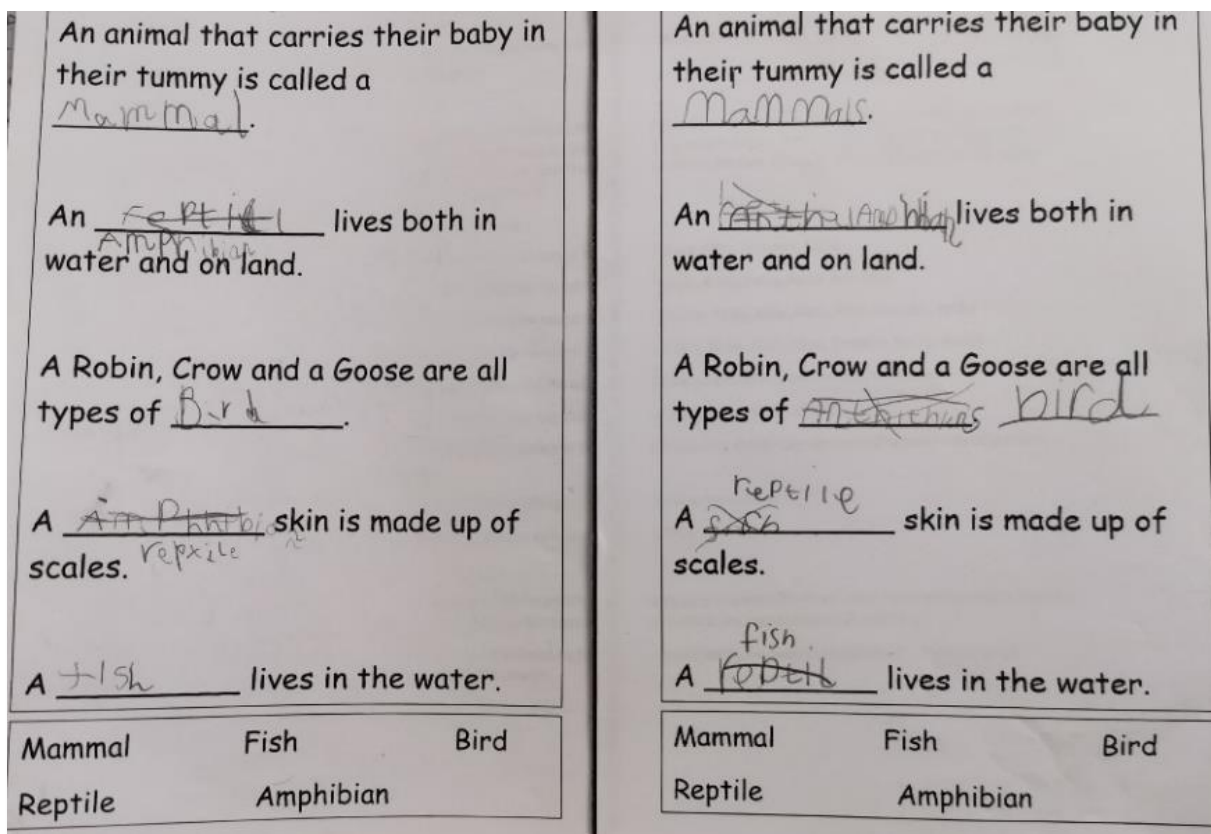 An animal that carries their baby in
their tummy is called a
Mammal.
An reptil lives both in
Amphibian
water and on land.
A Robin, Crow and a Goose are all
types of Bird.
A Amphhibian skin is made up of
scales. repxile
A fish lives in the water.
Mammal Fish Bird
Reptile Amphibian
An animal that carries their baby in
their tummy is called a
Mammals.
An lives both in
water and on land.
A Robin, Crow and a Goose are all
types of bird
reptile
A skin is made up of
scales.
fish
A reptil lives in the water.
Mammal Fish Bird
Reptile Amphibian